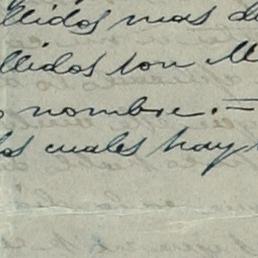 llidos mas d
llidos son M
o nombre. =
los cuales hay